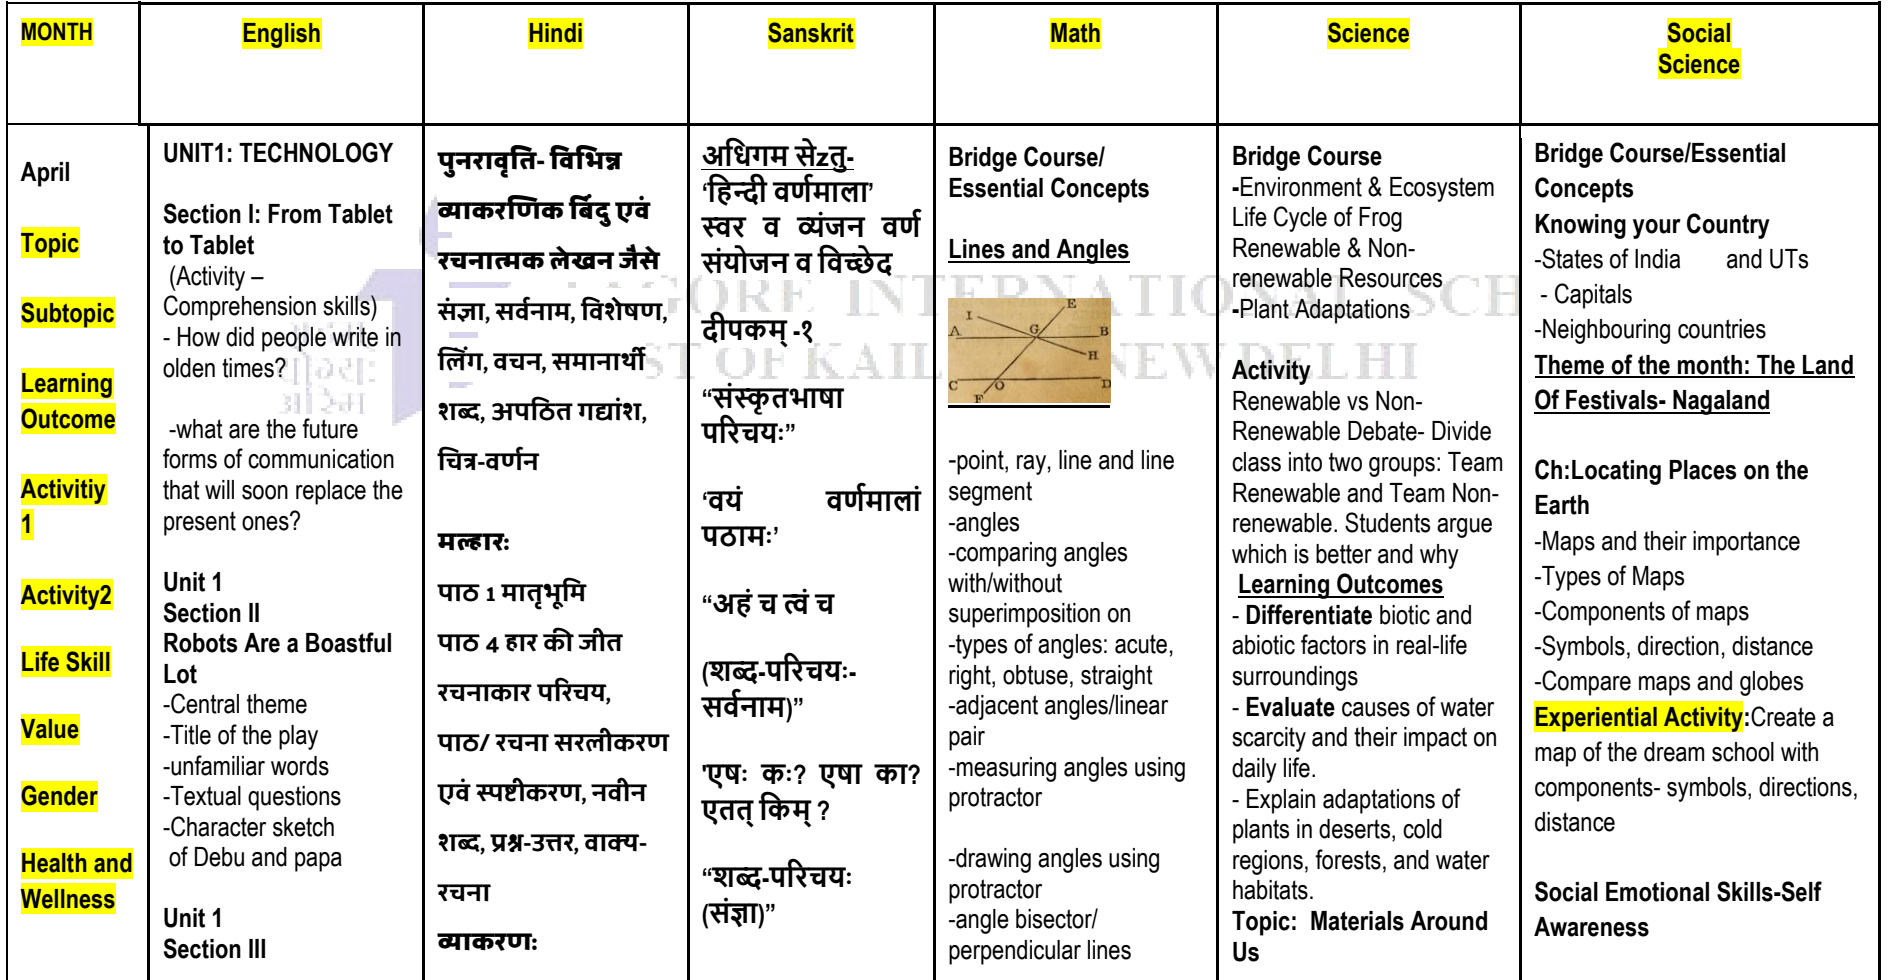 MONTH
English
Hindi
Sanskrit
Math
Science
Social
Science
April
Topic
Subtopic
Learning
Outcome
Activitiy
1
Activity2
Life Skill
Value
Gender
Health and
Wellness
UNIT1: TECHNOLOGY
Section I: From Tablet
to Tablet
(Activity –
Comprehension skills)
- How did people write in
olden times?
-what are the future
forms of communication
that will soon replace the
present ones?
Unit 1
Section II
Robots Are a Boastful
Lot
-Central theme
-Title of the play
-unfamiliar words
-Textual questions
-Character sketch
of Debu and papa
Unit 1
Section III
पुनरावृति- विभिन्न
व्याकरणिक बिंदु एवं
रचनात्मक लेखन जैसे
संज्ञा, सर्वनाम, विशेषण,
लिंग, वचन, समानार्थी
शब्द, अपठित गद्यांश,
चित्र-वर्णन
मल्हारः
पाठ 1 मातृभूमि
पाठ 4 हार की जीत
रचनाकार परिचय,
पाठ/ रचना सरलीकरण
एवं स्पष्टीकरण, नवीन
शब्द, प्रश्न-उत्तर, वाक्य-
रचना
व्याकरणः
अधिगम सेzतु-
‘हिन्दी वर्णमाला’
स्वर व व्यंजन वर्ण
संयोजन व विच्छेद
दीपकम् -१
“संस्कृतभाषा
परिचयः”
‘वयं वर्णमालां
पठामः’
“अहं च त्वं च
(शब्द-परिचयः-
सर्वनाम)”
'एषः कः? एषा का?
एतत् किम् ?
“शब्द-परिचयः
(संज्ञा)”
Bridge Course/
Essential Concepts
Lines and Angles
I
E
A
G
B
H
C
O
D
F
-point, ray, line and line
segment
-angles
-comparing angles
with/without
superimposition on
-types of angles: acute,
right, obtuse, straight
-adjacent angles/linear
pair
-measuring angles using
protractor
-drawing angles using
protractor
-angle bisector/
perpendicular lines
Bridge Course
-Environment & Ecosystem
Life Cycle of Frog
Renewable & Non-
renewable Resources
-Plant Adaptations
Activity
Renewable vs Non-
Renewable Debate- Divide
class into two groups: Team
Renewable and Team Non-
renewable. Students argue
which is better and why
Learning Outcomes
- Differentiate biotic and
abiotic factors in real-life
surroundings
- Evaluate causes of water
scarcity and their impact on
daily life.
- Explain adaptations of
plants in deserts, cold
regions, forests, and water
habitats.
Topic: Materials Around
Us
Bridge Course/Essential
Concepts
Knowing your Country
-States of India and UTs
- Capitals
-Neighbouring countries
Theme of the month: The Land
Of Festivals- Nagaland
Ch:Locating Places on the
Earth
-Maps and their importance
-Types of Maps
-Components of maps
-Symbols, direction, distance
-Compare maps and globes
Experiential Activity:Create a
map of the dream school with
components- symbols, directions,
distance
Social Emotional Skills-Self
Awareness
INTERNATIONAL
NEW DELHI